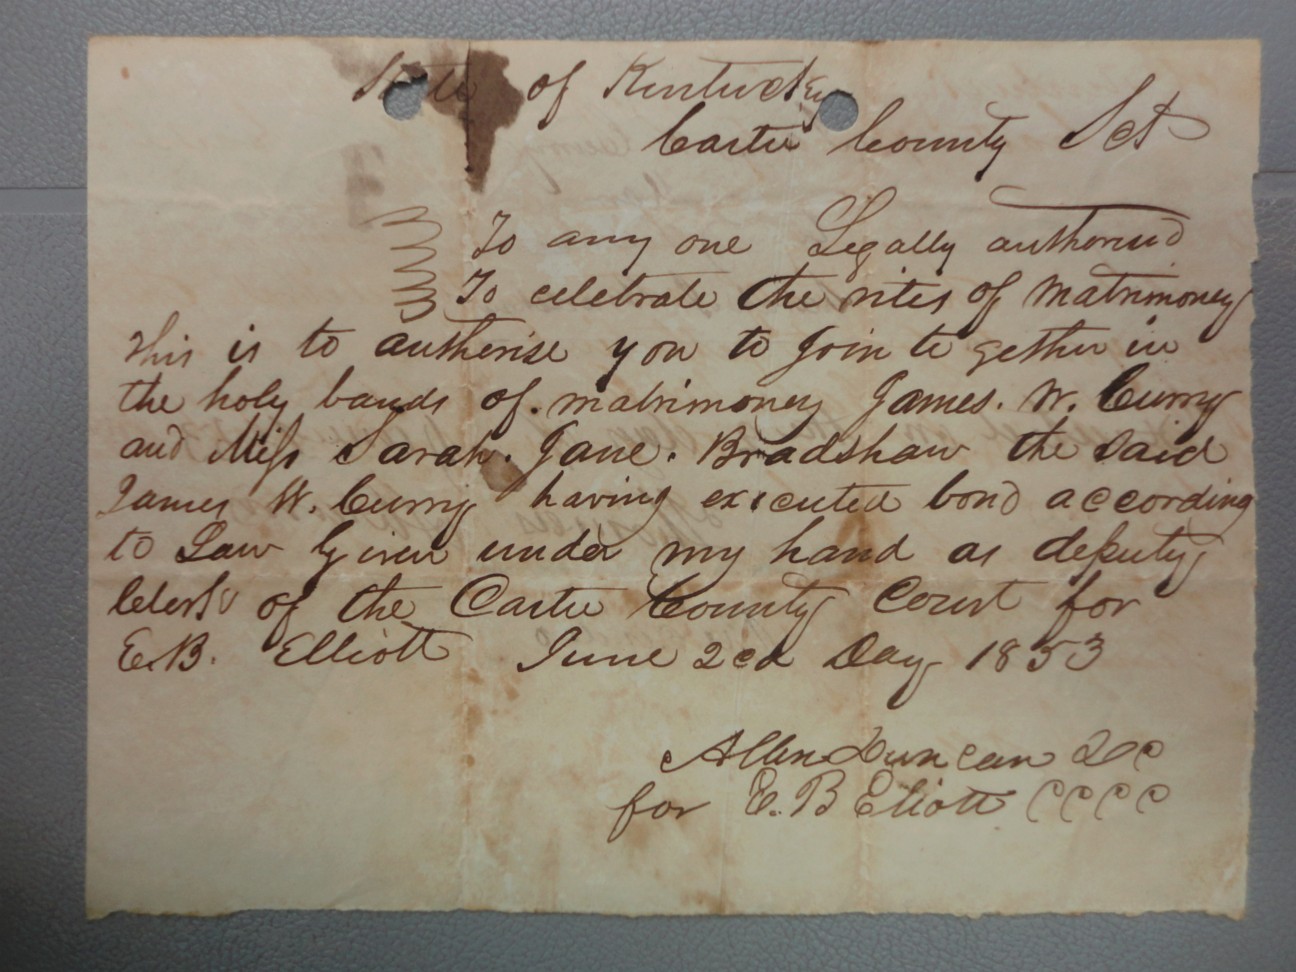 State of Kentucky
Carter County Sct
To any one Legally authorised
To celebrate the rites of Matrimoney
this is to autherise you to Join to gether in
the holy bands of. matrimoney James. W. Curry
and Miss Sarah. Jane. Bradshaw the said
James W. Curry having executed bond according
to Law Given under my hand as deputy
Clerk of the Carter County Court for
E.B. Elliott June 2cd Day 1853
Allen Duncan DC
for E. B Eliott CCCC